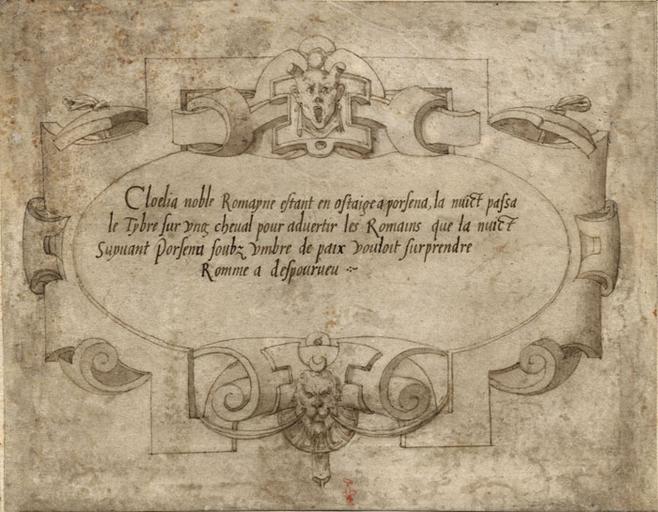 Cloelia noble Romayne estant en ostaige a porsena, la nuict passa
le Tybre sur vng cheual pour aduertir les Romains que la nuict
Suyuant Porsena soubz vmbre de paix vouloit surprendre
Romme a despourueu